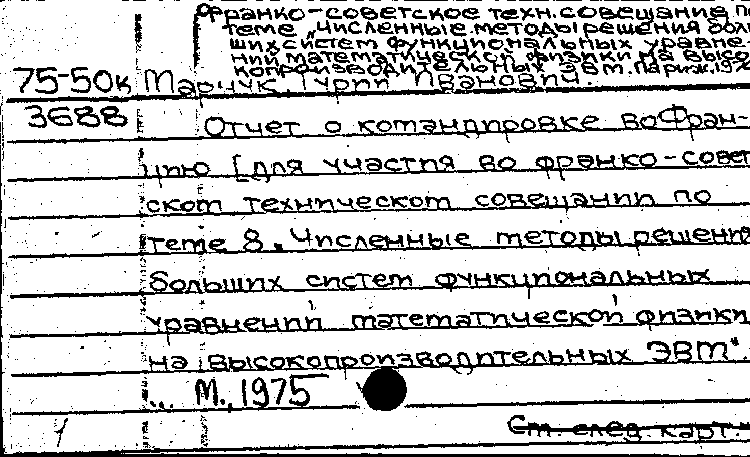 Франко-советское техн. совещание по
теме „Численные методы решения боль
ших систем функциональных уравне
ний математической физики на высо
копроизводительных ЭВМ. Париж. 197
75-50к Марчук, Гурий Иванович.
3688 Отчет о командировке во Фран-
цию [для участия во франко-совет
ском техническом совещании по
теме 8 „Численные методы решения
больших систем функциональных
уравнений математической физики
на высокопроизводительных ЭВМ"
... М., 1975
1 См. след. карт.